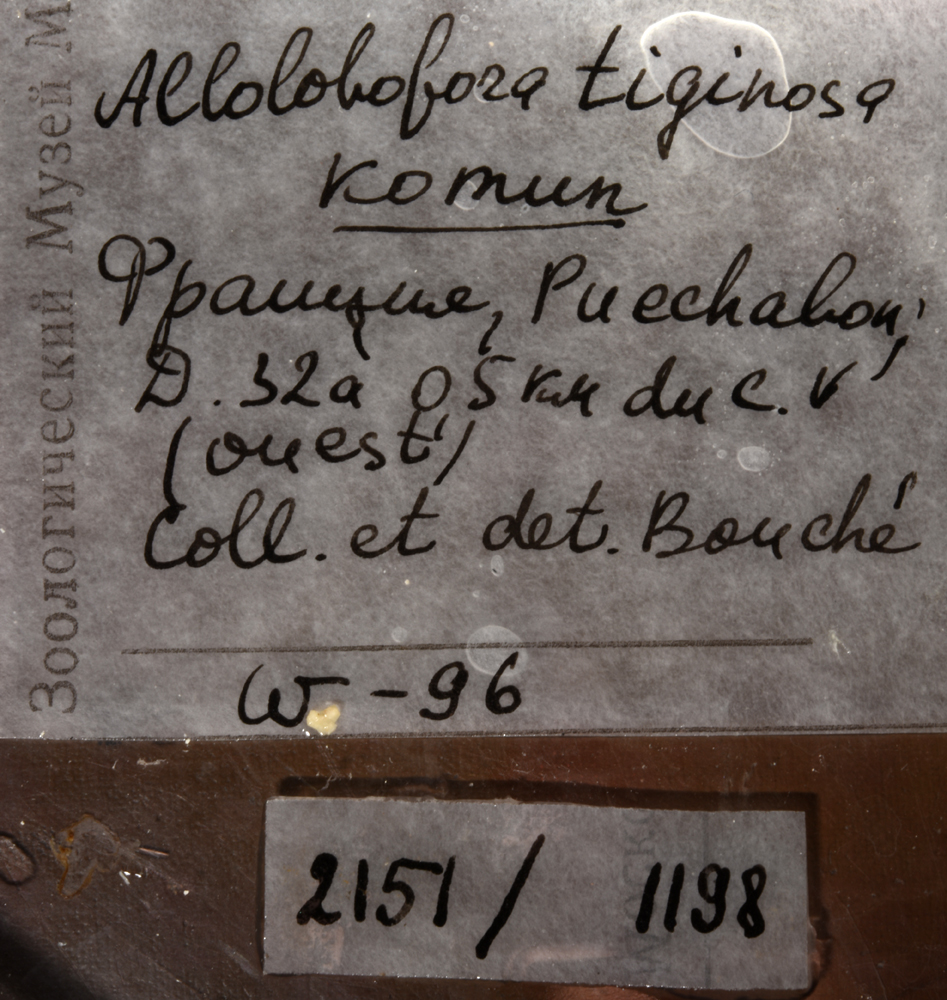 Allolobofora tiginosa
котип
Франция, Puechabon,
D. 32à 05 км du C. V
(ouest)
Coll. et det. Bouché
W - 96
2151/ 1198
Зоологический Музей М